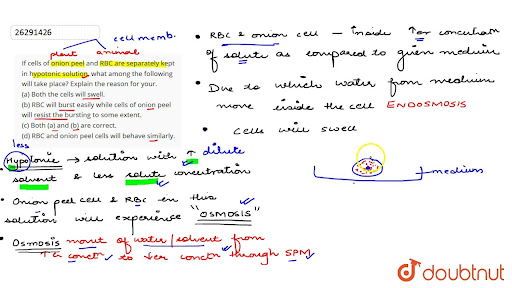 26291426
cell memb.
plant animal
If cells of onion peel and RBC are separately kept
in hypotonic solution, what among the following
will take place? Explain the reason for your.
(a) Both the cells will swell.
(b) RBC will burst easily while cells of onion peel
will resist the bursting to some extent.
(c) Both (a) and (b) are correct.
(d) RBC and onion peel cells will behave similarly.
less
Hypotonic → solution with ↑ dilute
solvent & less solute concentration
• Onion peel cell & RBC in this
solution will experience "OSMOSIS"
• Osmosis movnt of water/solvent from
↑ concn to concn through SPM
• RBC & onion cell – inside ↑er concentratn
of solute as compared to given medium
• Due to which water from medium
move inside the cell ENDOSMOSIS
• cells will swell
medium
doubtnut